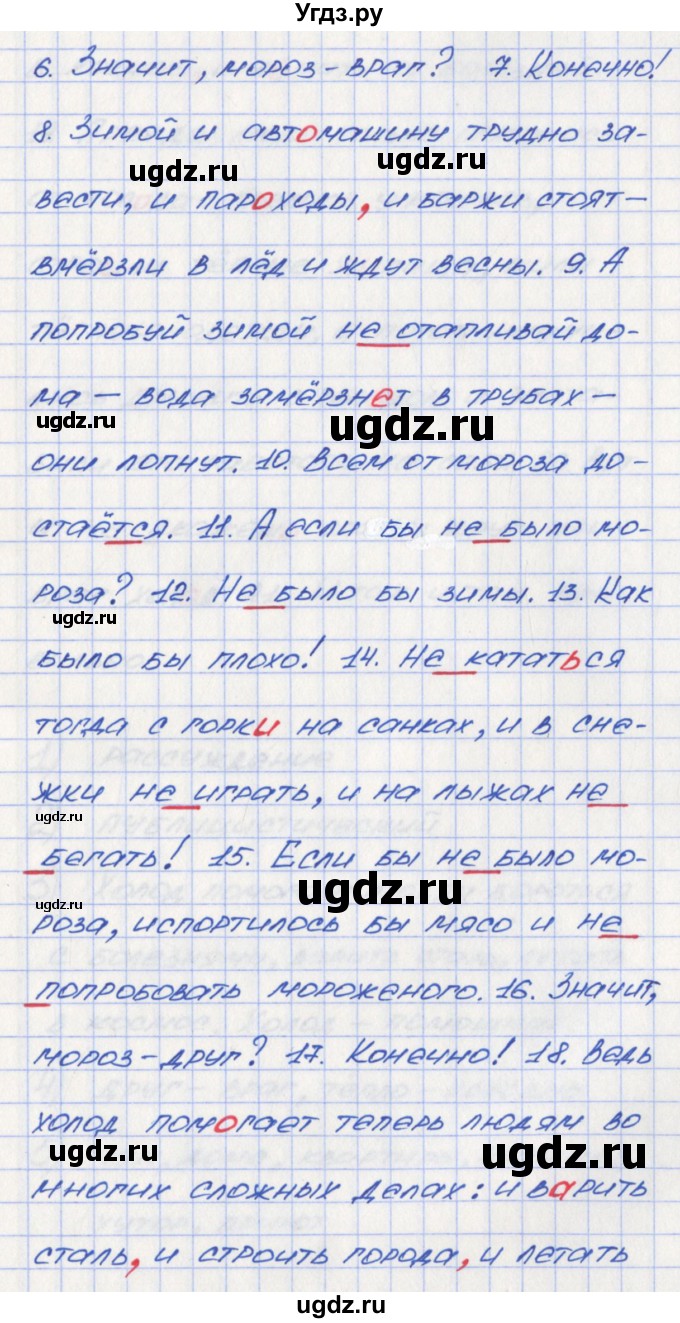 Угдз.ру
6. Значит, мороз - враг? 7. Конечно!
8. Зимой и автомашину трудно за-
ugdz.ru ugdz.ru
вести, и пароходы, и баржи стоят -
вмёрзли в лёд и ждут весны. 9. А
попробуй зимой, не отапливай до-
ма - вода замёрзнет в трубах -
ugdz.ru ugdz.ru
они лопнут. 10. Всем от мороза до-
стаётся. 11. А если бы не было мо-
роза? 12. Не было бы зимы. 13. Как
ugdz.ru
было бы плохо! 14. Не кататься
тогда с горки на санках, и в сне-
жки не играть, и на лыжах не
ugdz.ru
бегать! 15. Если бы не было мо-
ugdz.ru ugdz.ru
роза, испортилось бы мясо и не
попробовать мороженого. 16. Значит,
мороз - друг? 17. Конечно! 18. Ведь
холод помогает теперь людям во
ugdz.ru ugdz.ru
многих сложных делах: и варить
сталь, и строить города, и летать
ugdz.ru